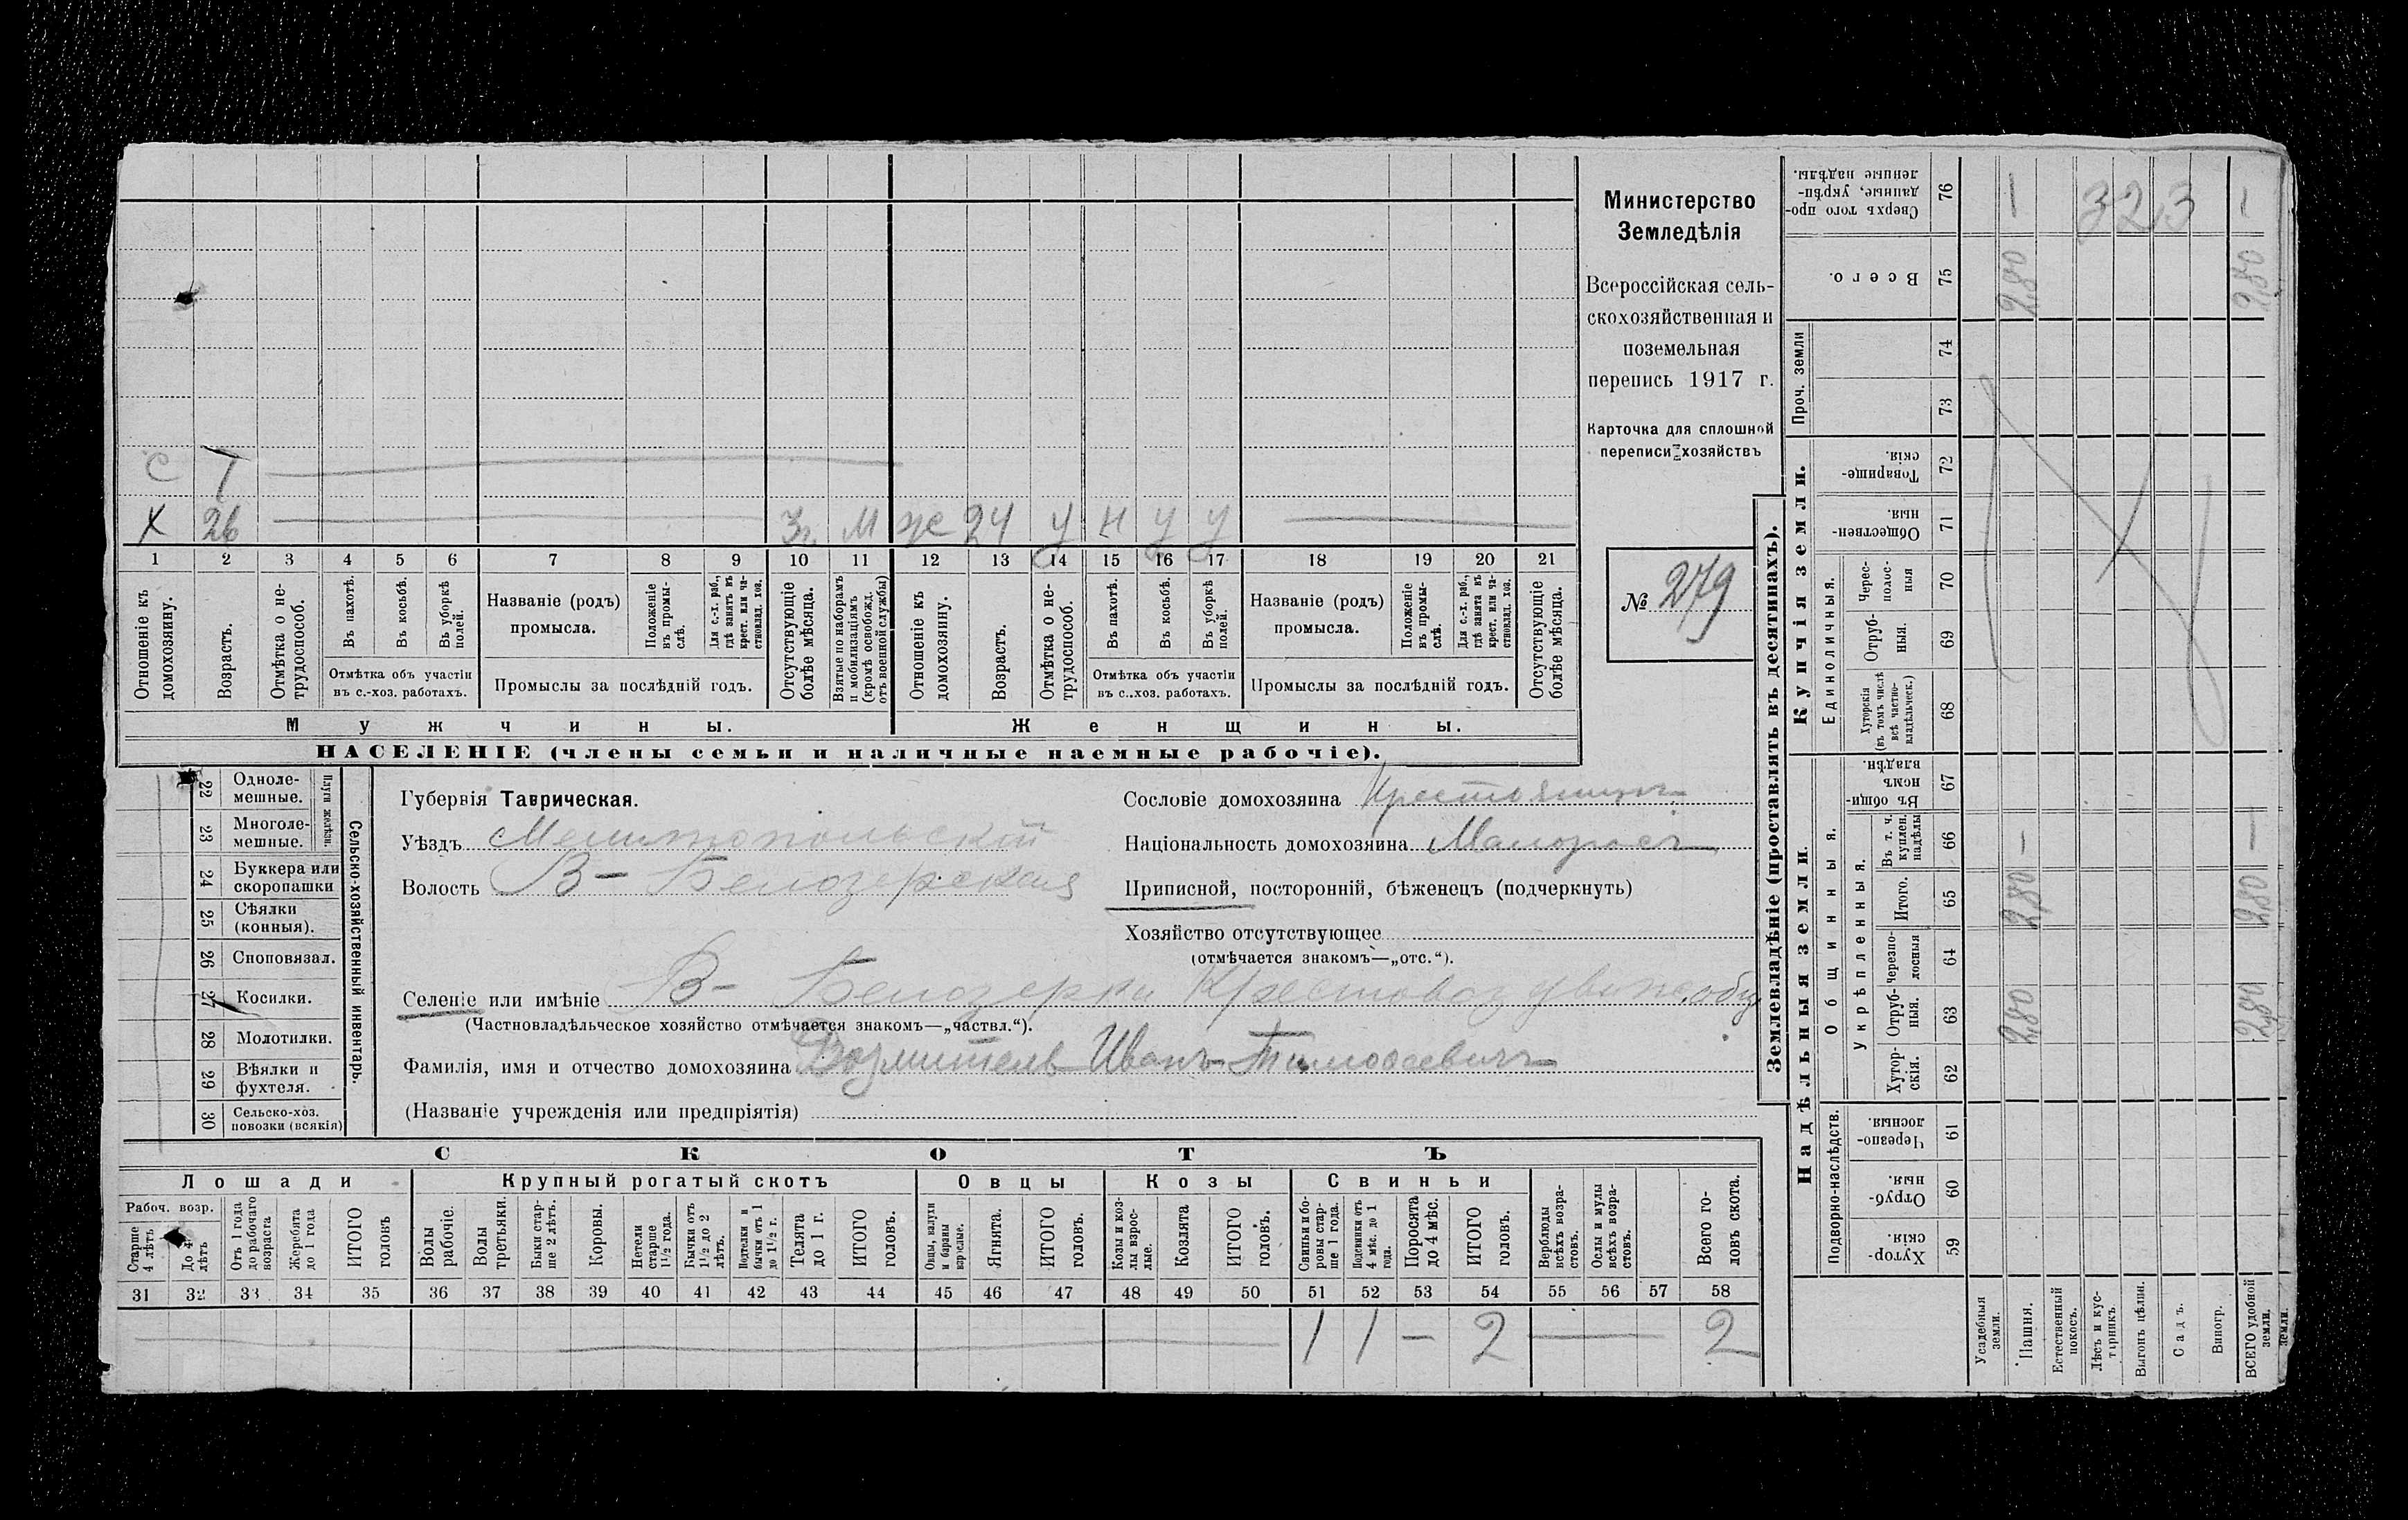 С 7
Х 26 3 г. М Ж 24 У Н У У
1 2 3 4 5 6 7 8 9 10 11 12 13 14 15 16 17 18 19 20 21
Отношеніе къ домохозяину.
Возрастъ.
Отмѣтка о не-трудоспособ.
Въ пахотѣ.
Въ косьбѣ.
Въ уборкѣ полей.
Отмѣтка объ участіи
въ с.-хоз. работахъ.
Названіе (родъ)
промысла.
Положеніе въ промы-слѣ.
Для с.-х. раб., гдѣ занятъ въ крест. или ча-стновлад. хоз.
Промыслы за послѣдній годъ.
Отсутствующіе болѣе мѣсяца.
Взятые по наборамъ и мобилизаціямъ (кромѣ освобожд. отъ военной службы)
Отношеніе къ домохозяину.
Возрастъ.
Отмѣтка о не-трудоспособ.
Въ пахотѣ.
Въ косьбѣ.
Въ уборкѣ полей.
Отмѣтка объ участіи
въ с.-хоз. работахъ.
Названіе (родъ)
промысла.
Положеніе въ промы-слѣ.
Для с.-х. раб., гдѣ занята въ крест. или ча-стновлад. хоз.
Промыслы за послѣдній годъ.
Отсутствующіе болѣе мѣсяца.
Мужчины. Женщины.
НАСЕЛЕНІЕ (члены семьи и наличные наемные рабочіе).
Министерство
Земледѣлія
Всероссійская сель-
скохозяйственная и
поземельная
перепись 1917 г.
Карточка для сплошной
переписи хозяйствъ
№ 279
22 Одноле-мешные.
23 Многоле-мешные.
Плуги желѣзн.
24 Буккера или скоропашки
25 Сѣялки (конныя).
26 Сноповязал.
27 Косилки.
28 Молотилки.
29 Вѣялки и фухтеля.
30 Сельско-хоз. повозки (всякія)
Сельско-хозяйственный инвентарь.
Губернія Таврическая.
Уѣздъ Мелитопольскій
Волость В- Белозерская
Селеніе или имѣніе В- Белозерки Крестовоздвиж. общ
(Частновладѣльческое хозяйство отмѣчается знакомъ—„частвл.“).
Фамилія, имя и отчество домохозяина Возмитель Иванъ Тимофеевичъ
(Названіе учрежденія или предпріятія)
Сословіе домохозяина Крестьянинъ
Національность домохозяина Малоросъ
Приписной, посторонній, бѣженецъ (подчеркнуть)
Хозяйство отсутствующее
(отмѣчается знакомъ—„отс.“).
СКОТЪ
Лошади Крупный рогатый скотъ Овцы Козы Свиньи
Рабоч. возр.
Старше 4 лѣтъ
До 4 лѣтъ
Отъ 1 года до рабочаго возраста
Жеребята до 1 года
ИТОГО головъ
Волы рабочіе.
Волы третьяки.
Быки стар-ше 2 лѣтъ.
Коровы.
Нетели старше 1½ года.
Бычки отъ 1½ до 2 лѣтъ.
Подтелки и бычки отъ 1 до 1½ г.
Телята до 1 г.
ИТОГО головъ.
Овцы, валухи и бараны взрослые.
Ягнята.
ИТОГО головъ.
Козы и коз-лы взрос-лые.
Козлята
ИТОГО головъ.
Свиньи и бо-ровы стар-ше 1 года.
Подсвинки отъ 4 мѣс. до 1 года.
Поросята до 4 мѣс.
ИТОГО головъ.
Верблюды всѣхъ возра-стовъ.
Ослы и мулы всѣхъ возра-стовъ.
Всего го-ловъ скота.
31 32 33 34 35 36 37 38 39 40 41 42 43 44 45 46 47 48 49 50 51 52 53 54 55 56 57 58
1 1 — 2 — 2
Землевладѣніе (проставлять въ десятинахъ).
Купчія земли.
Надѣльныя земли.
Сверхъ того про-данные, укрѣп-ленные надѣлы. 76 — 32,3 —
Всего. 75 2,80 2,80
Проч. земли 74
73
Товарище-скія. 72
Обществен-ныя. 71
Единоличныя.
Черес-полос-ныя 70
Отруб-ныя. 69
Хуторскія (въ томъ числѣ всѣ частно-владѣльческ.) 68
Общинныя.
Въ общин-номъ владѣн. 67
Укрѣпленныя.
Въ т. ч. куплен. надѣлы 66 — —
Итого. 65 2,80 2,80
Черезпо-лосныя 64
Отруб-ныя. 63 2,80 2,80
Хутор-скія. 62
Подворно-наслѣдств.
Черезпо-лосныя. 61
Отруб-ныя. 60
Хутор-скія. 59
Усадебныя земли.
Пашня.
Естественный покосъ.
Лѣсъ и кус-тарникъ.
Выгонъ цѣлин.
Садъ.
Виногр.
ВСЕГО удобной земли.
земли.